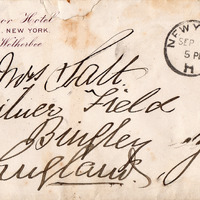 or Hotel
NEW YORK.
Wetherbee
NEW Y
SEP
5 P
H
Mrs Salt
ilner Field
Bingley
England